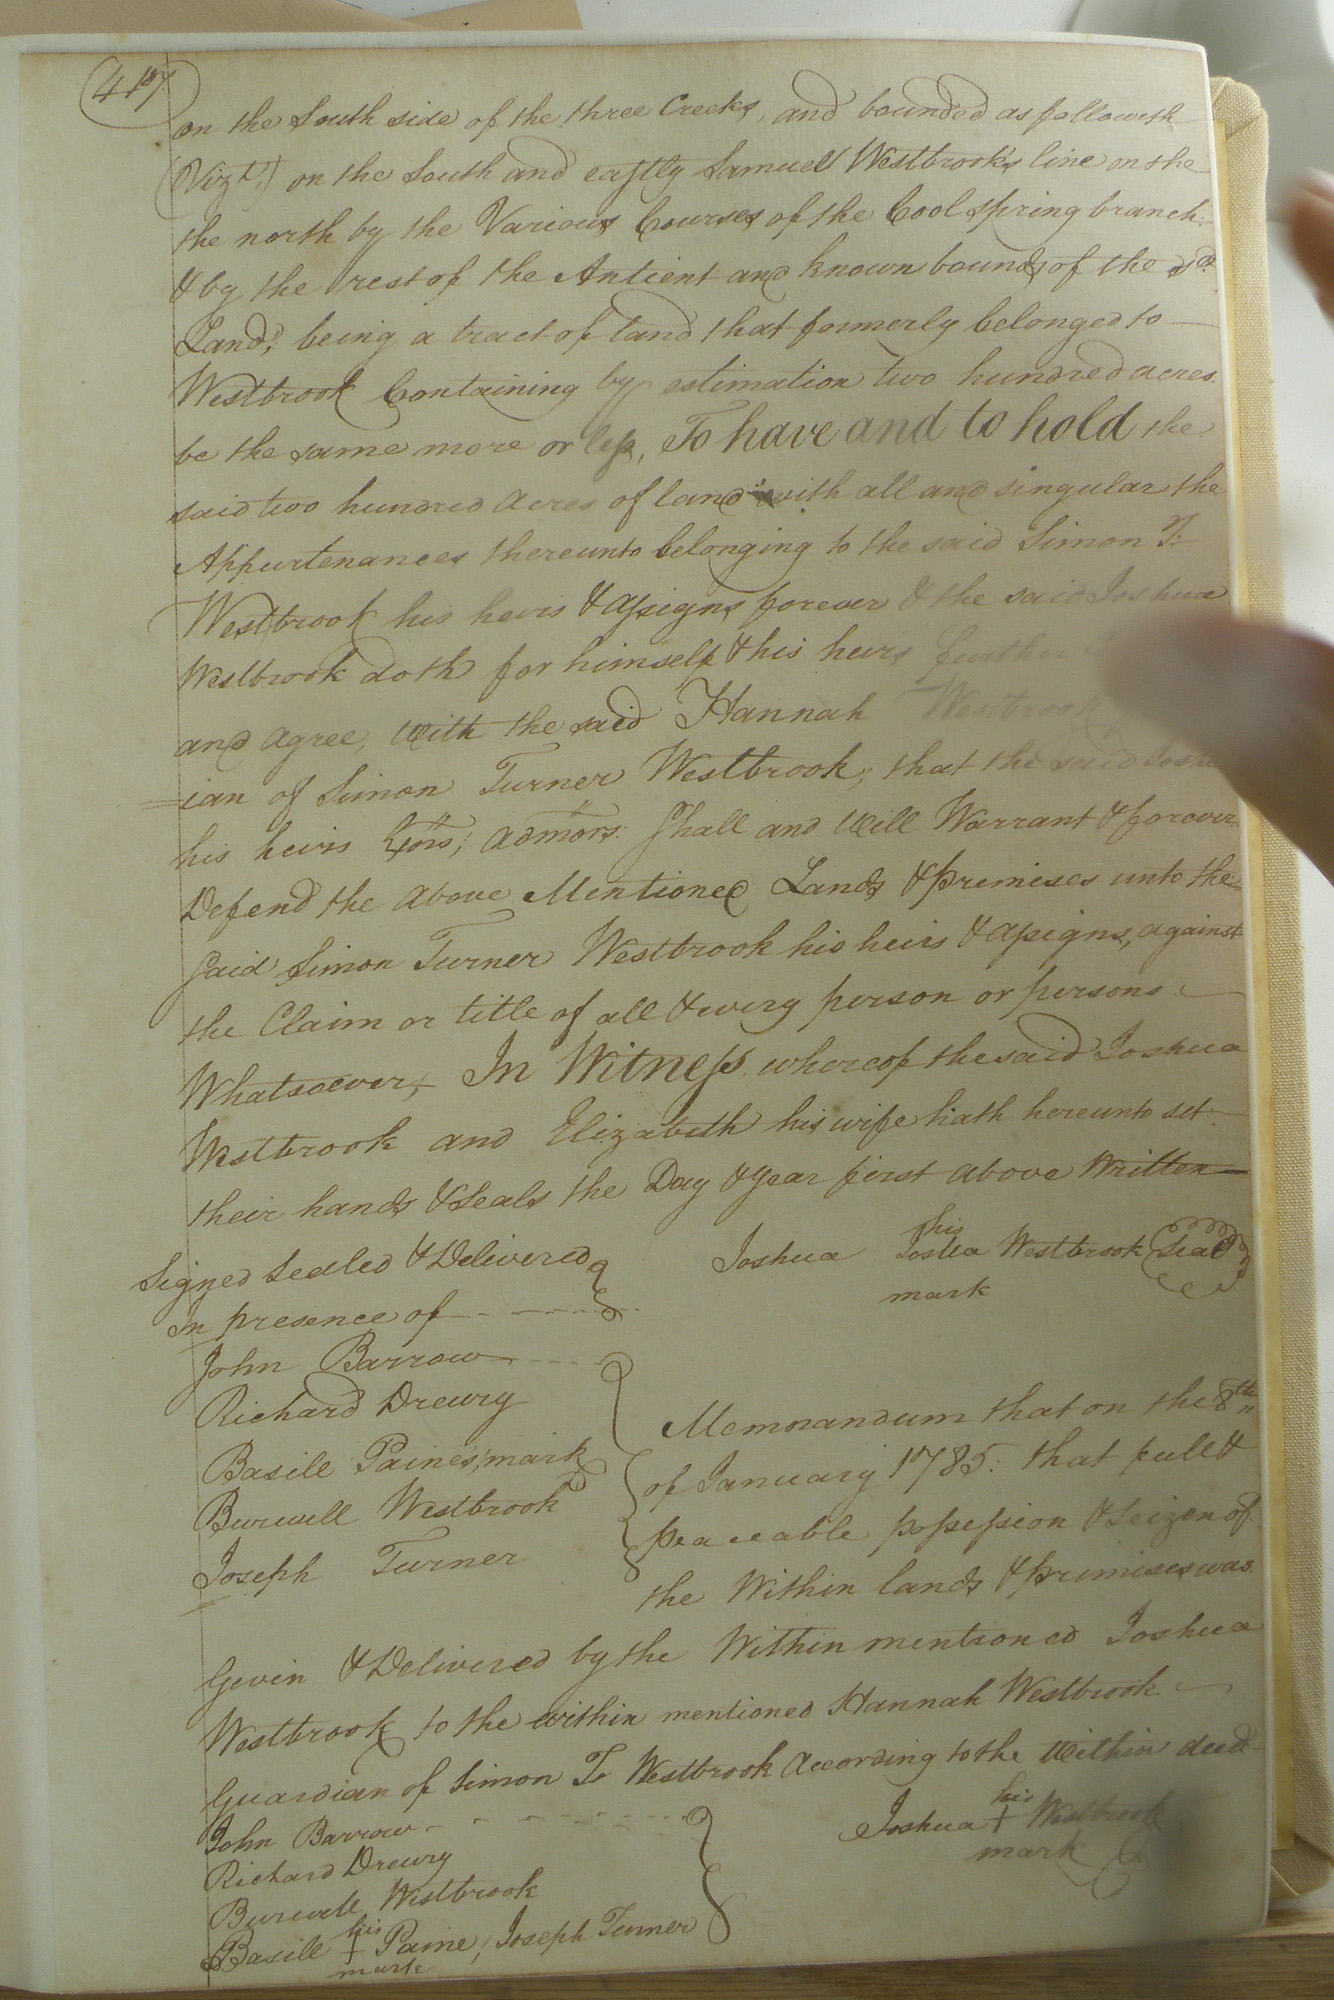 417
on the South side of the three Creeks, and bounded as followeth
(Vizt.) on the South and eastly Samuel Westbrook's line on the
the north by the Various Courses of the Cool spring branch
& by the rest of the Antient and known bounds of the sd.
Land, being a tract of land that formerly belonged to
Westbrook Containing by estimation two hundred acres
be the same more or less, To have and to hold the
said two hundred acres of land with all and singular the
Appurtenances thereunto belonging to the said Simon T:
Westbrook his heirs & assigns forever & the said Joshua
Westbrook doth for himself & his heirs further
and agree, with the said Hannah Westbrook
=ian of Simon Turner Westbrook; that the said
his heirs Exors; admors: Shall and will Warrant & forever
Defend the above Mentioned Lands & premises unto the
said Simon Turner Westbrook his heirs & assigns, against
the Claim or title of all & every person or persons
Whatsoever, In Witness whereof the said Joshua
Westbrook and Elizabeth his wife hath hereunto set
their hands & Seals the Day & year first above Written
Signed Sealed & Delivered
In presence of
his
Joshua Westbrook Seal
mark
John Barrow
Richard Drewry
Basile Paine's mark
Burwell Westbrook
Joseph Turner
Memorandum that on the 8th
of January 1785: that full &
peaceable possession & Seizen of
the Within lands & primises was
Gevin & Delivered by the Within mentioned Joshua
Westbrook to the within mentioned Hannah Westbrook
Guardian of Simon T Westbrook According to the within deed
his
Joshua + Westbrook
mark
John Barrow
Richard Drewry
Burwell Westbrook
his
Basile + Paine, Joseph Turner
mark